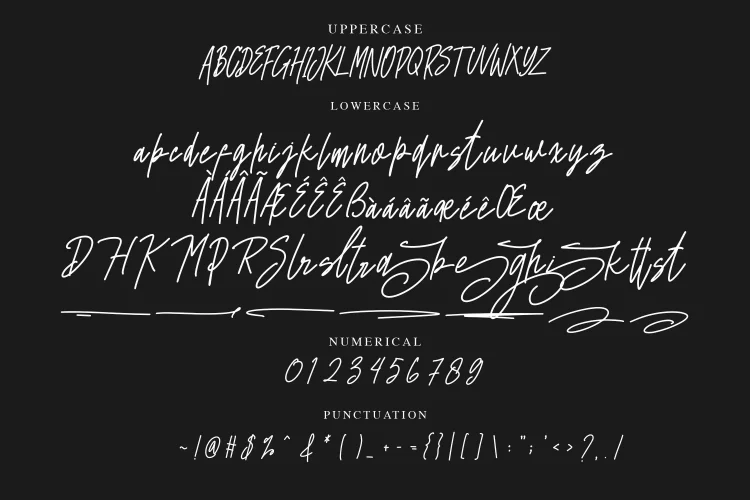 UPPERCASE
ABCDEFGHIJKLMNOPQRSTUVWXYZ
LOWERCASE
abcdefghijklmnopqrstuvwxyz
ÀÁÂÃÆÉÊÊßàáâãæéêŒœ
DHKMPRS
NUMERICAL
0123456789
PUNCTUATION
~!@#$%^&*()_+-={}|[]\:";'<>?,./